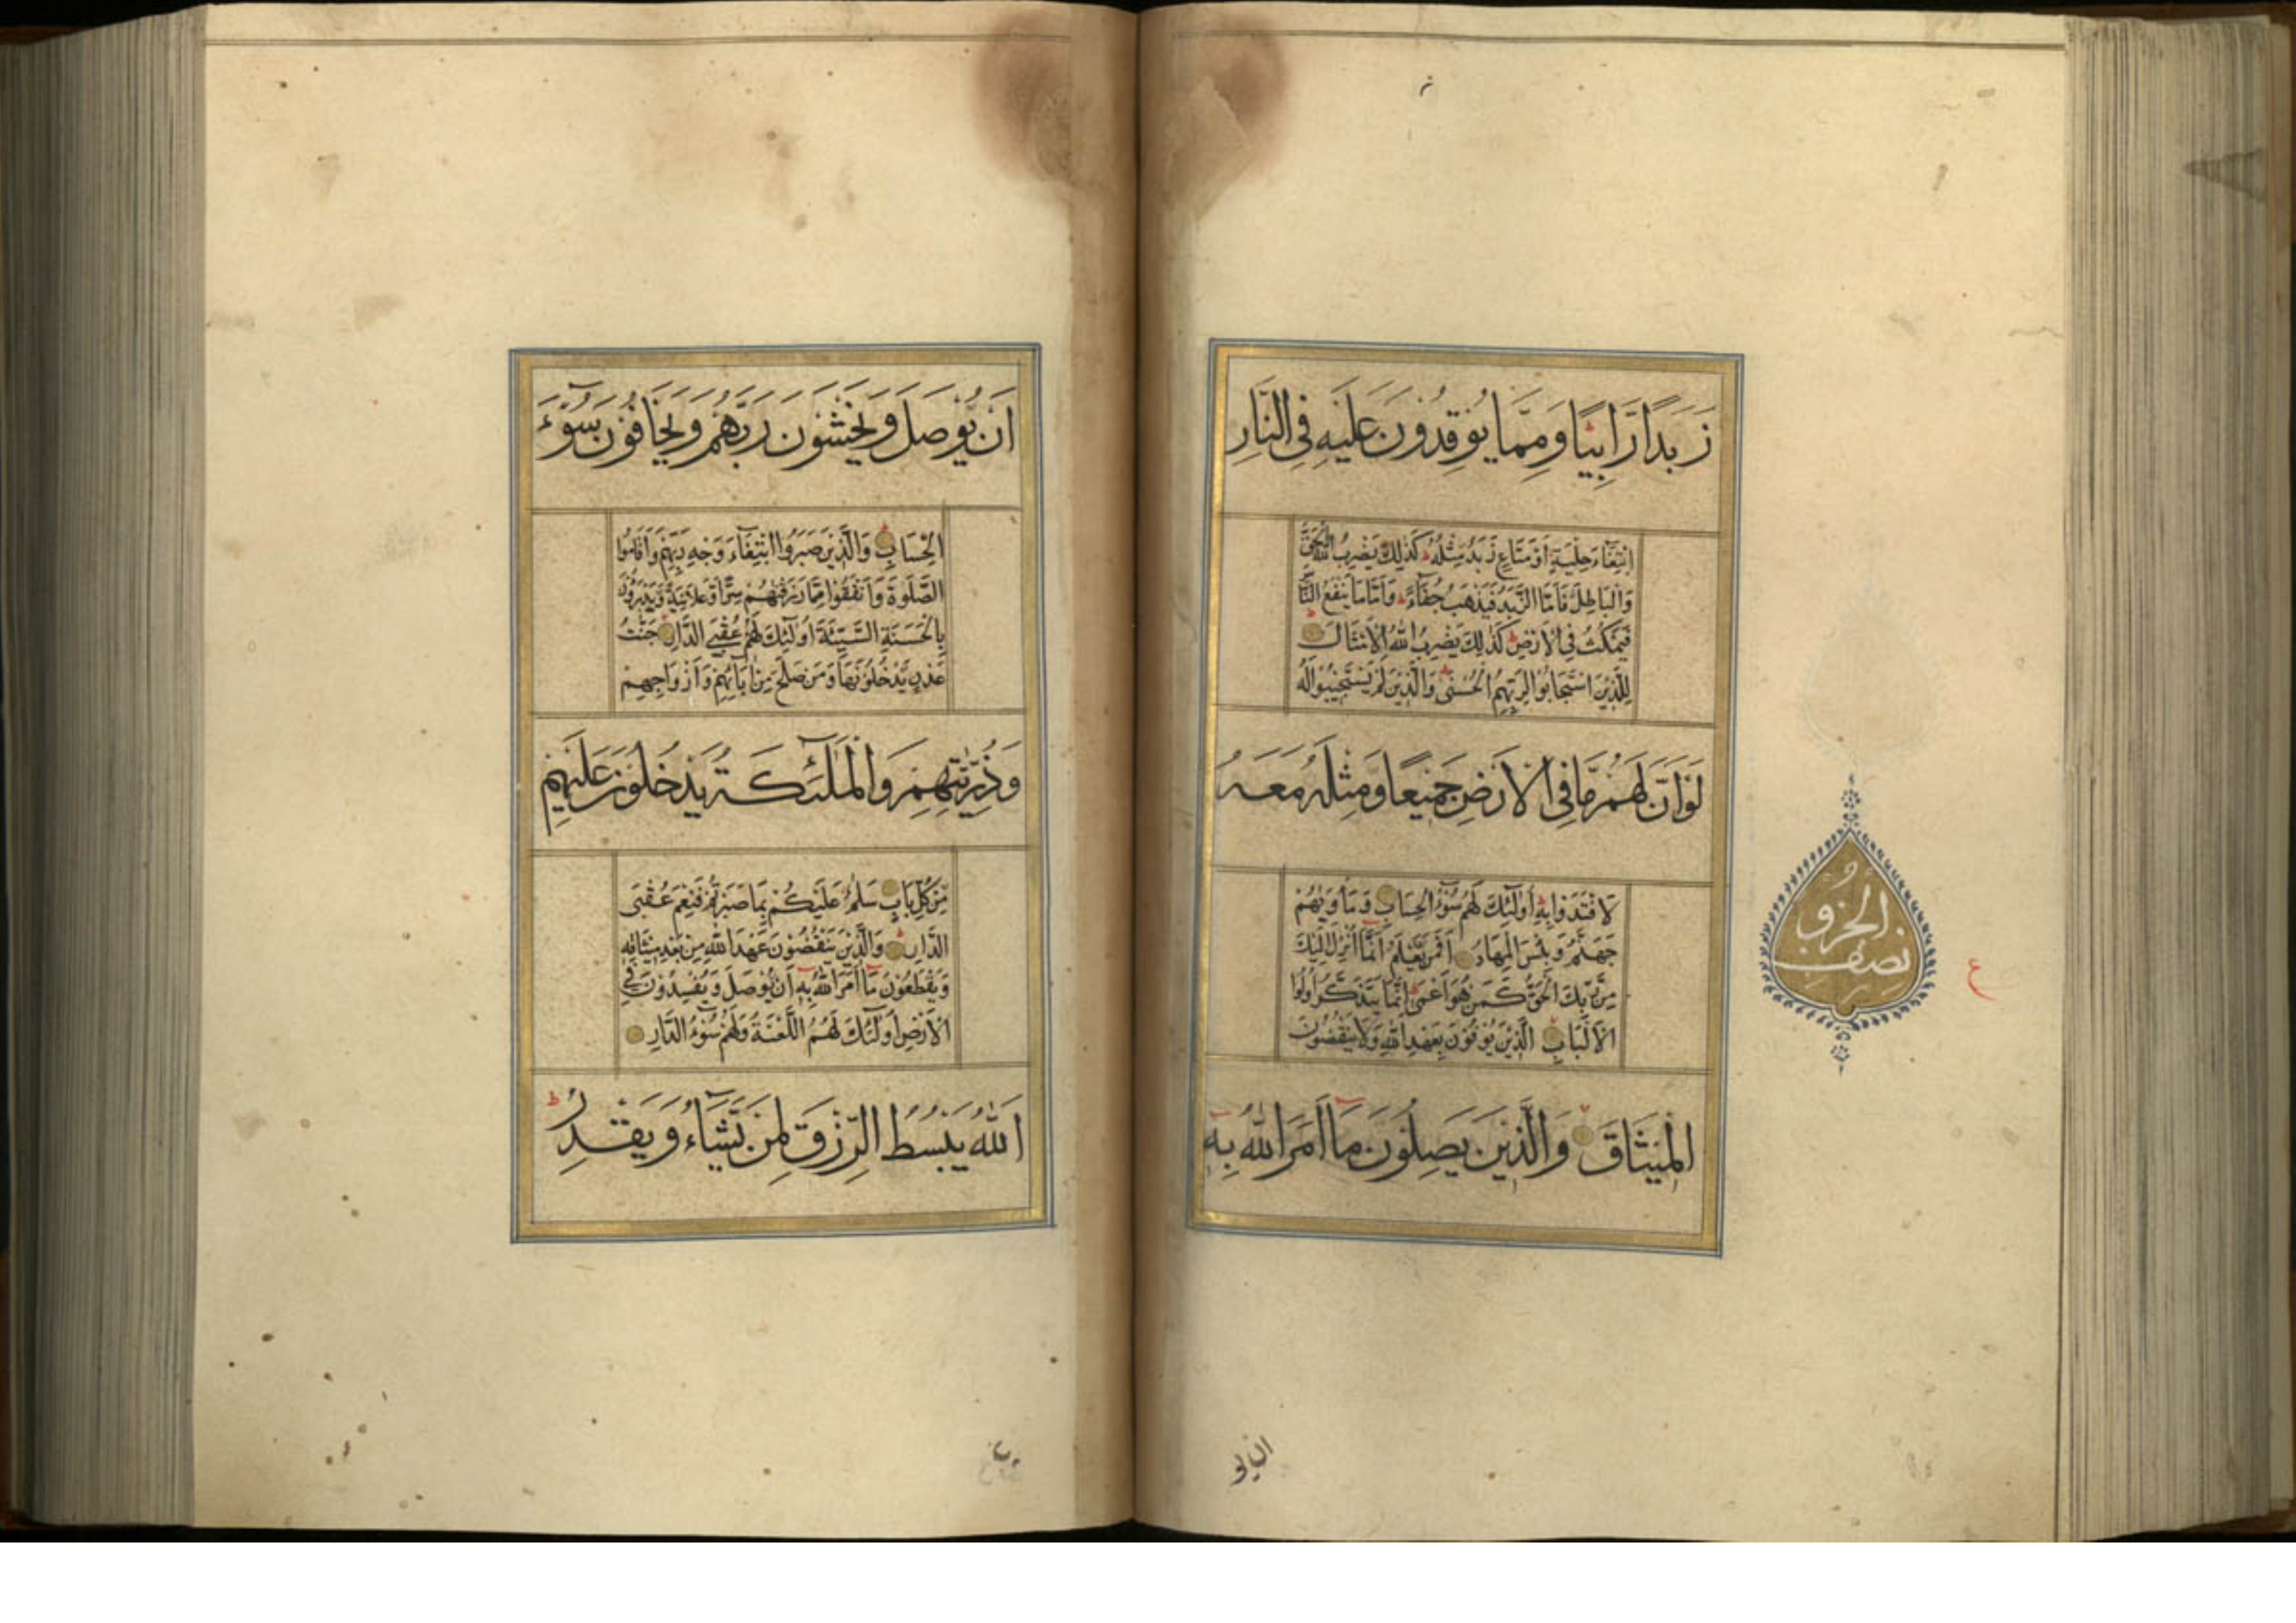 زَبَدًا رَّابِيًا وَمِمَّا يُوقِدُونَ عَلَيْهِ فِي النَّارِ
ابْتِغَاءَ حِلْيَةٍ أَوْ مَتَاعٍ زَبَدٌ مِثْلُهُ كَذَلِكَ يَضْرِبُ اللَّهُ الْحَقَّ
وَالْبَاطِلَ فَأَمَّا الزَّبَدُ فَيَذْهَبُ جُفَاءً وَأَمَّا مَا يَنْفَعُ النَّاسَ
فَيَمْكُثُ فِي الْأَرْضِ كَذَلِكَ يَضْرِبُ اللَّهُ الْأَمْثَالَ
لِلَّذِينَ اسْتَجَابُوا لِرَبِّهِمُ الْحُسْنَى وَالَّذِينَ لَمْ يَسْتَجِيبُوا لَهُ
لَوْ أَنَّ لَهُمْ مَّا فِي الْأَرْضِ جَمِيعًا وَمِثْلَهُ مَعَهُ
لَافْتَدَوْا بِهِ أُولَٰئِكَ لَهُمْ سُوءُ الْحِسَابِ وَمَأْوَيٰهُمْ
جَهَنَّمُ وَبِئْسَ الْمِهَادُ أَفَمَنْ يَعْلَمُ أَنَّمَا أُنْزِلَ إِلَيْكَ
مِنْ رَّبِّكَ الْحَقُّ كَمَنْ هُوَ أَعْمَى إِنَّمَا يَتَذَكَّرُ أُولُوا
الْأَلْبَابِ الَّذِينَ يُوفُونَ بِعَهْدِ اللَّهِ وَلَا يَنْقُضُونَ
الْمِيثَاقَ وَالَّذِينَ يَصِلُونَ مَا أَمَرَ اللَّهُ بِهِ
نصف الحزو
ع
ان يو
أَنْ يُّوصَلَ وَيَخْشَوْنَ رَبَّهُمْ وَيَخَافُونَ سُوءَ
الْحِسَابِ وَالَّذِينَ صَبَرُوا ابْتِغَاءَ وَجْهِ رَبِّهِمْ وَأَقَامُوا
الصَّلٰوةَ وَأَنْفَقُوا مِمَّا رَزَقْنٰهُمْ سِرًّا وَّعَلَانِيَةً وَّيَدْرَؤُنَ
بِالْحَسَنَةِ السَّيِّئَةَ أُولَٰئِكَ لَهُمْ عُقْبَى الدَّارِ جَنّٰتُ
عَدْنٍ يَّدْخُلُونَهَا وَمَنْ صَلَحَ مِنْ اٰبَائِهِمْ وَأَزْوَاجِهِمْ
وَذُرِّيّٰتِهِمْ وَالْمَلٰئِكَةُ يَدْخُلُونَ عَلَيْهِمْ
مِّنْ كُلِّ بَابٍ سَلٰمٌ عَلَيْكُمْ بِمَا صَبَرْتُمْ فَنِعْمَ عُقْبَى
الدَّارِ وَالَّذِينَ يَنْقُضُونَ عَهْدَ اللَّهِ مِنْ بَعْدِ مِيثَاقِهِ
وَيَقْطَعُونَ مَا أَمَرَ اللَّهُ بِهِ أَنْ يُّوصَلَ وَيُفْسِدُونَ فِي
الْأَرْضِ أُولَٰئِكَ لَهُمُ اللَّعْنَةُ وَلَهُمْ سُوءُ الدَّارِ
اَللَّهُ يَبْسُطُ الرِّزْقَ لِمَنْ يَّشَاءُ وَيَقْدِرُ